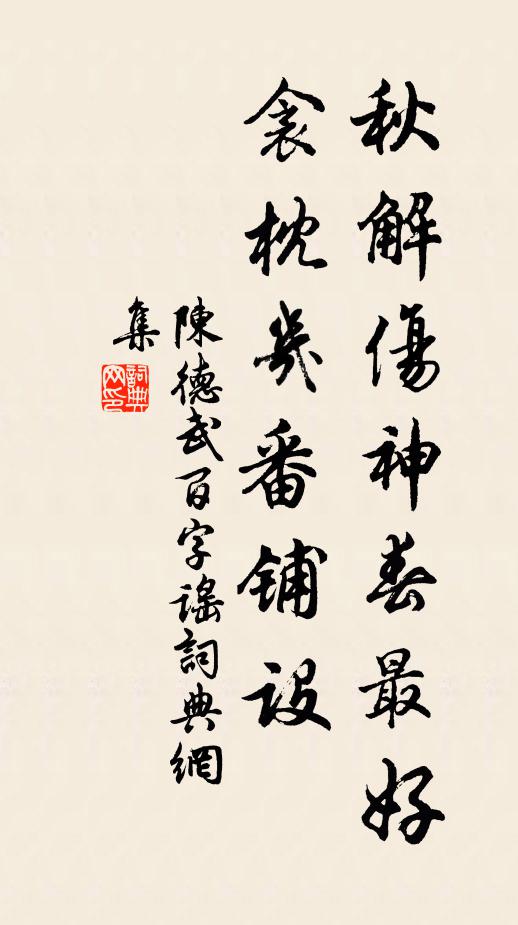 秋解傷神春最好
衾枕幾番鋪設
陳德武百字謠詞典網
集
詞典
网印